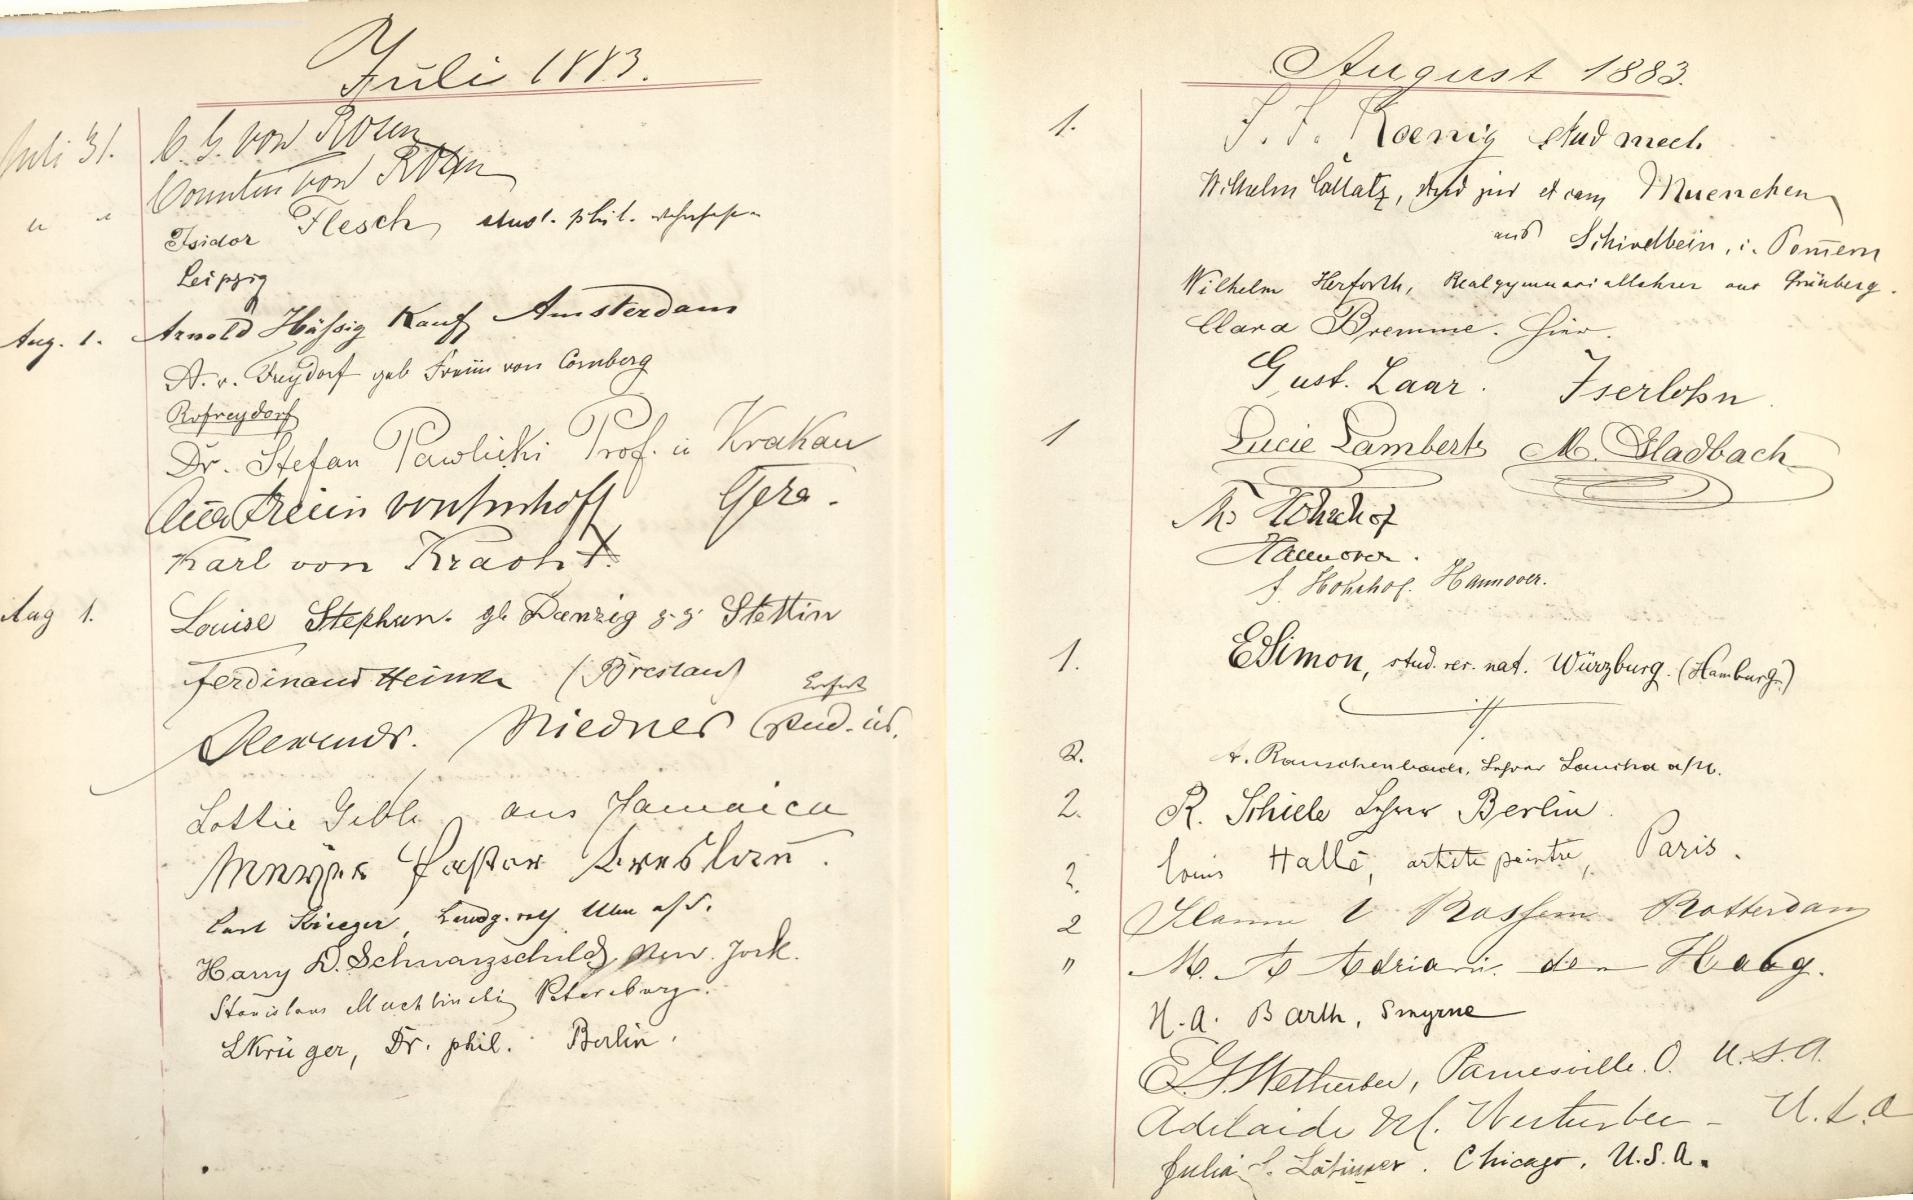 Juli 1883.
Juli 31. C. G. von Rosen
Countess von Rosen
" " Isidor Flesch, stud. phil.
Leipzig
Aug. 1. Arnold Häfsig Kauf Amsterdam
A. v. Freydorf geb Freiin von Cornberg
Dr. Stefan Pawlicki Prof. u Krakau
Freiin von Imhoff Gera.
Karl von Kracht.
Aug 1. Louise Stephan. Danzig z. Z. Stettin
Ferdinand Heinke (Breslau)
Erfurt
Alexandr. Niedner (stud. iur.
Lottie Gibb aus Jamaica
Pastor Breslau.
Carl Krieger, Ulm a/D.
Harry D. Schwarzschild, New. York.
Stanislaus Petersburg.
LKrüger, Dr. phil. Berlin.
August 1883.
1. J. F. Koenig stud mech.
Wilhelm Collatz, stud jur et cam Muenchen
aus Schivelbein, i. Pom̄ern
Wilhelm Herforth, Realgymnasiallehrer aus Grünberg.
Clara Bremme. Hier.
Gust. Laar. Iserlohn.
1 Lucie Lamberts M. Gladbach
Th. Hohnhof
Hannover.
f. Hohnhof. Hannover.
1. ESimon, stud. rer. nat. Würzburg. (Hamburg.)
2. A. Rauschenbach, Lehrer Laucha a/U.
2. R. Schiele Lehrer Berlin.
2. Louis Hallé, artiste peintre, Paris.
2 v Rossem. Rotterdam
" M. A Adriani. den Haag.
H. A. Barth, Smyrne
E. G. Wetherbee, Painesville. O. U.S.A.
Adelaide M. Wetherbee - U.S.A
Julia S. Latimer. Chicago. U.S.A.